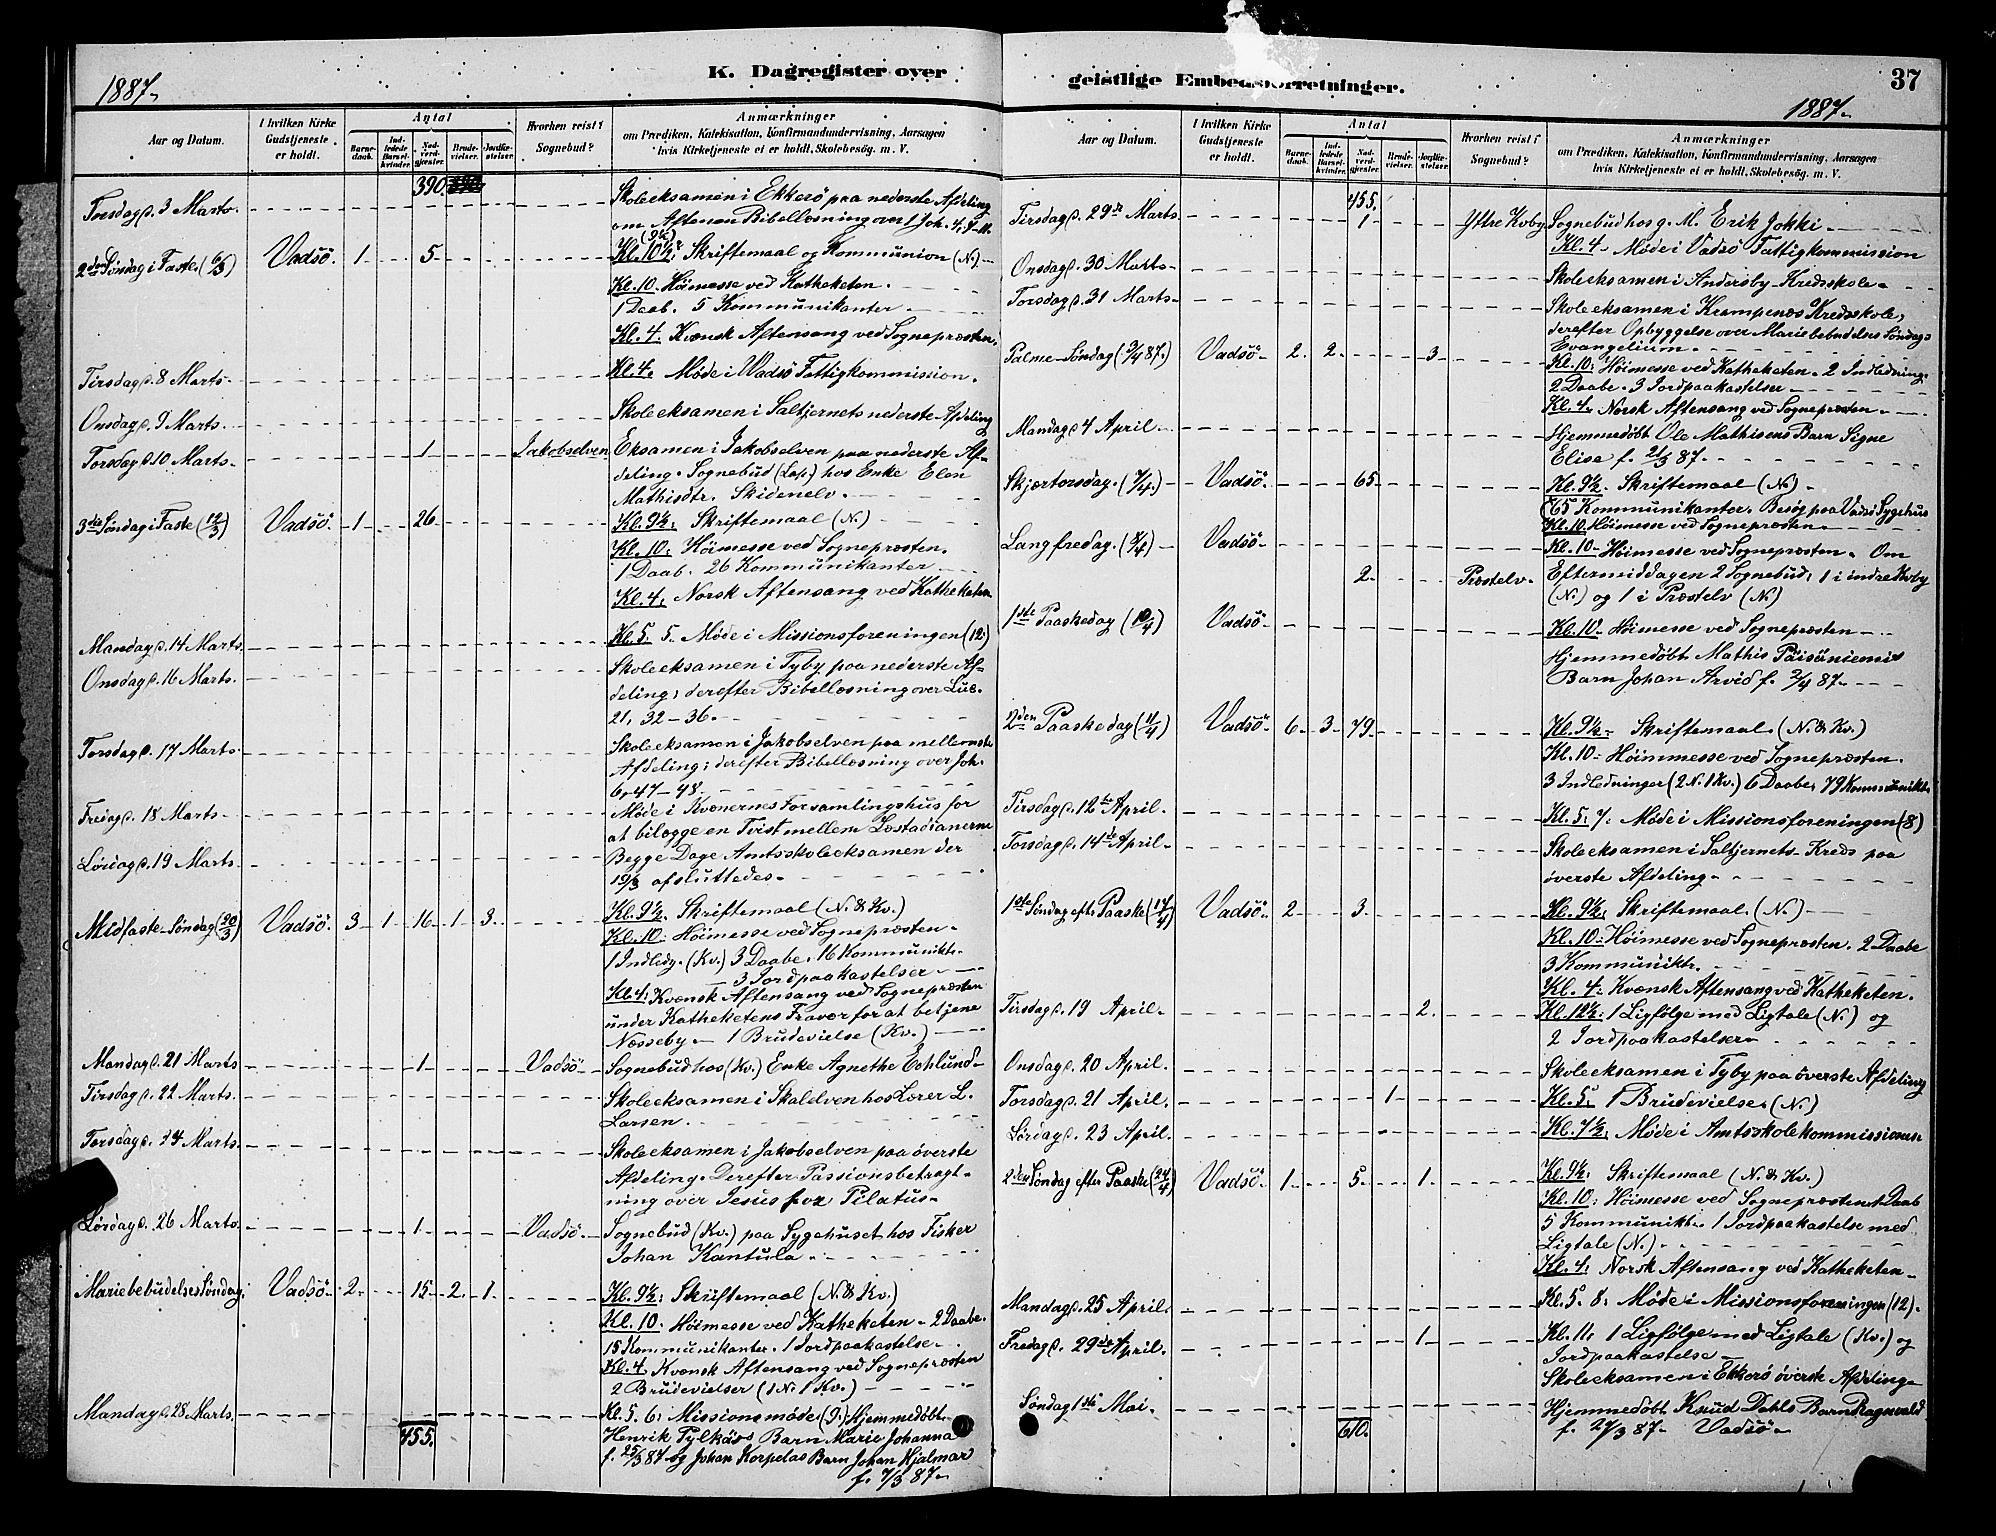 K. Dagregister over
1887.
Aar og Datum.
I hvilken Kirke Gudstjeneste er holdt.
Antal
Barne-daab.
Ind-ledede Barsel-kvinder.
Nad-verd-gjester.
Brude-vielser.
Jordfæ-stelser.
Hvorhen reist i Sognebud?
Anmærkninger
om Prædiken, Katekisation, Konfirmandundervisning, Aarsagen
hvis Kirketjeneste ei er holdt, Skolebesög. m. V.
390.
Torsdag d. 3 Marts. Skoleeksamen i Ekkerö paa nederste Afdeling
om Aftenen Bibellæsning over 1 Joh. 4,
2den Søndag i Faste (6/3) Vadsö 1 5 Kl. 10½: Skriftemaal og Kommunion (N.)
(9½)
Kl. 10. Höimesse ved Katheketen.
1 Daab. 5 Kommunikanter.
Kl. 4. Kvænsk Aftensang ved Sognepræsten.
Tirsdag d. 8 Marts. Kl. 4. Møde i Vadsö Fattigkommission.
Onsdag d. 9 Marts. Skoleeksamen i Saltjernets nederste Afdeling
Torsdag d. 10 Marts. 1 Jakobselven Eksamen i Jakobselven paa nederste Af-
deling. Sognebud (Lap.) hos Enke Elen
Mathisdtr. Skidenelv.
3die Søndag i Faste (13/3) Vadsö 1 26 Kl. 9½: Skriftemaal (N.)
Kl. 10: Höimesse ved Sognepræsten.
1 Daab. 26 Kommunikanter
Kl. 4: Norsk Aftensang ved Katheketen
Mandag d. 14 Marts. Kl. 5. 5. Møde i Missionsforeningen (12.)
Onsdag d. 16 Marts. Skoleeksamen i Tyby paa nederste Af-
deling; derefter Bibellæsning over Luc.
21, 32-36.
Torsdag d. 17 Marts. Skoleeksamen i Jakobselven paa mellemste
Afdeling; derefter Bibellæsning over Joh.
6, 47-48.
Fredag d. 18 Marts. Møde i Kvænernes Forsamlingshus for
at bilægge en Tvist mellem Læstadianerne
Lördag d. 19 Marts. Begge Dage Amtsskoleeksamen der
19/3 afsluttedes.
Midfaste-Søndag (20/3) Vadsö 3 1 16 1 3 Kl. 9½. Skriftemaal (N. & Kv.)
Kl. 10: Höimesse ved Sognepræsten.
1 Indledn. (Kv.) 3 Daabe. 16 Kommunikts.
3 Jordpaakastelser
Kl 4: Kvænsk Aftensang ved Sognepræsten
under Katheketens Fravær for at betjene
Næsseby. 1 Brudevielse (Kv.)
Mandag d. 21 Marts 1 Vadsö Sognebud hos (Kv.) Enke Agnethe Echlund
Tirsdag d. 22 Marts. Skoleeksamen i Skalelven hos Lærer L.
Larsen.
Torsdag d. 24 Marts. Skoleeksamen i Jakobselven paa överste
Afdeling. Derefter Passionsbetragt-
ning over Jesus for Pilatus.
Lördag d. 26 Marts. 1 Vadsö Sognebud (Kv.) paa Sygehuset hos Fisker
Johan Kantula
Mariebebudelses Søndag. Vadsö 2 15 2 1 Kl. 9½: Skriftemaal (N. & Kv.)
Kl. 10. Höimesse ved Katheketen. 2 Daabe.
15 Kommunikanter. 1 Jordpaakastelse.
Kl. 4. Kvænsk Aftensang ved Sognepræsten
2 Brudevielser (1 N. 1 Kv.)
Mandag d. 28 Marts. Kl. 5. 6: Missionsmøde (9.) Hjemmedöbt
455. Henrik Pylkäs Barn Marie Johanna
f. 25/3 87 og Johan Korpelas Barn Johan Hjalmar
f. 7/3 87.
geistlige Embedsforretninger.
37
1887.
Aar og Datum.
I hvilken Kirke Gudstjeneste er holdt.
Antal
Barne-daab.
Ind-ledede Barsel-kvinder.
Nad-verd-gjester.
Brude-vielser.
Jordfæ-stelser.
Hvorhen reist i Sognebud?
Anmærkninger
om Prædiken, Katekisation, Konfirmandundervisning, Aarsagen
hvis Kirketjeneste ei er holdt, Skolebesög. m. V.
455.
Tirsdag d. 29de Marts. 1 Yttre Kvby Sognebud hos g. M. Erik Jokki
Kl. 4. Möde i Vadsö Fattigkommission
Onsdag d. 30 Marts. Skoleeksamen i Andersby Kredsskole.
Torsdag d. 31 Marts. Skoleeksamen i Krampenæs Kredsskole,
derefter Opbyggelse over Mariebebudelses Søndags
Evangelium.
Palme-Søndag (3/4 87.) Vadsö 2. 2. 3 Kl. 10: Höimesse ved Katheketen. 2 Indledning.
2 Daabe. 3 Jordpaakastelser
Kl. 4. Norsk Aftensang ved Sognepræsten.
Mandag d. 4 April. Hjemmedöbt Ole Mathisens Barn Signe
Elise f. 21/3 87.
Skjærtorsdag. (7/4.) Vadsö 65 Kl. 9½. Skriftemaal (N.)
65 Kommunikanter. Besög paa Vadsö Sygehus
Kl. 10. Höimesse ved Sognepræsten.
Langfredag. (8/4) Vadsö Kl. 10 Höimesse ved Sognepræsten. Om
2. Præstelv. Eftermiddagen 2 Sognebud, 1 i indre Kvby
(N.) og 1 i Præstelv (N.)
1ste Paaskedag (10/4) Vadsö Kl. 10. Höimesse ved Sognepræsten
Hjemmedöbt Mathis Päisäniemis
Barn Johan Arvid f. 2/4 87.
2den Paaskedag (11/4) Vadsö 6 3 79. Kl. 9½. Skriftemaal. (N. & Kv.)
Kl. 10. Höimmesse ved Sognepræsten.
3 Indledninger (2 N. 1 Kv.) 6 Daabe, 79 Kommunikt.
Tirsdag d. 12te April. Kl. 5. 7. Møde i Missionsforeningen (8)
Torsdag d. 14de April. Skoleeksamen i Saltjernets Kreds paa
överste Afdeling.
1ste Søndag eft. Paaske (17/4) Vadsö 2 3. Kl. 9½: Skriftemaal. (N.)
Kl. 10: Höimesse ved Sognepræsten. 2 Daabe
3 Kommunikt.
Kl. 4: Kvænsk Aftensang ved Katheketen.
Tirsdag d. 19 April. 2 Kl. 12½: 1 Ligfölge med Ligtale (N.) og
2 Jordpaakastelser
Onsdag d. 20 April. Skoleeksamen i Tyby paa överste Afdeling
Torsdag d. 21 April. 1 Kl. 5: 1 Brudevielse. (N.)
Lördag d. 23 April. Kl. 7½: Möde i Amtsskolekommissionen
2den Søndag efter Paaske (24/4) Vadsö 1 5 1 Kl. 9½: Skriftemaal (N. & Kv.)
Kl. 10: Höimesse ved Sognepræsten 1 Daab
5 Kommunikt. 1 Jordpaakastelse med
Ligtale (N.)
Kl. 4: Norsk Aftensang ved Katheketen.
Mandag d. 25 April. Kl. 5. 8: Möde i Missionsforeningen (12).
Fredag d. 29de April. 1 Kl. 11: 1 Ligfölge med Ligtale (Kv.) og
Jordpaakastelse.
Skoleeksamen i Ekkerö överste Afdeling
Søndag 1ste Mai. Hjemmedöbt Knud Dahls Barn Ragnvald
610. f. 27/3 87. Vadsö